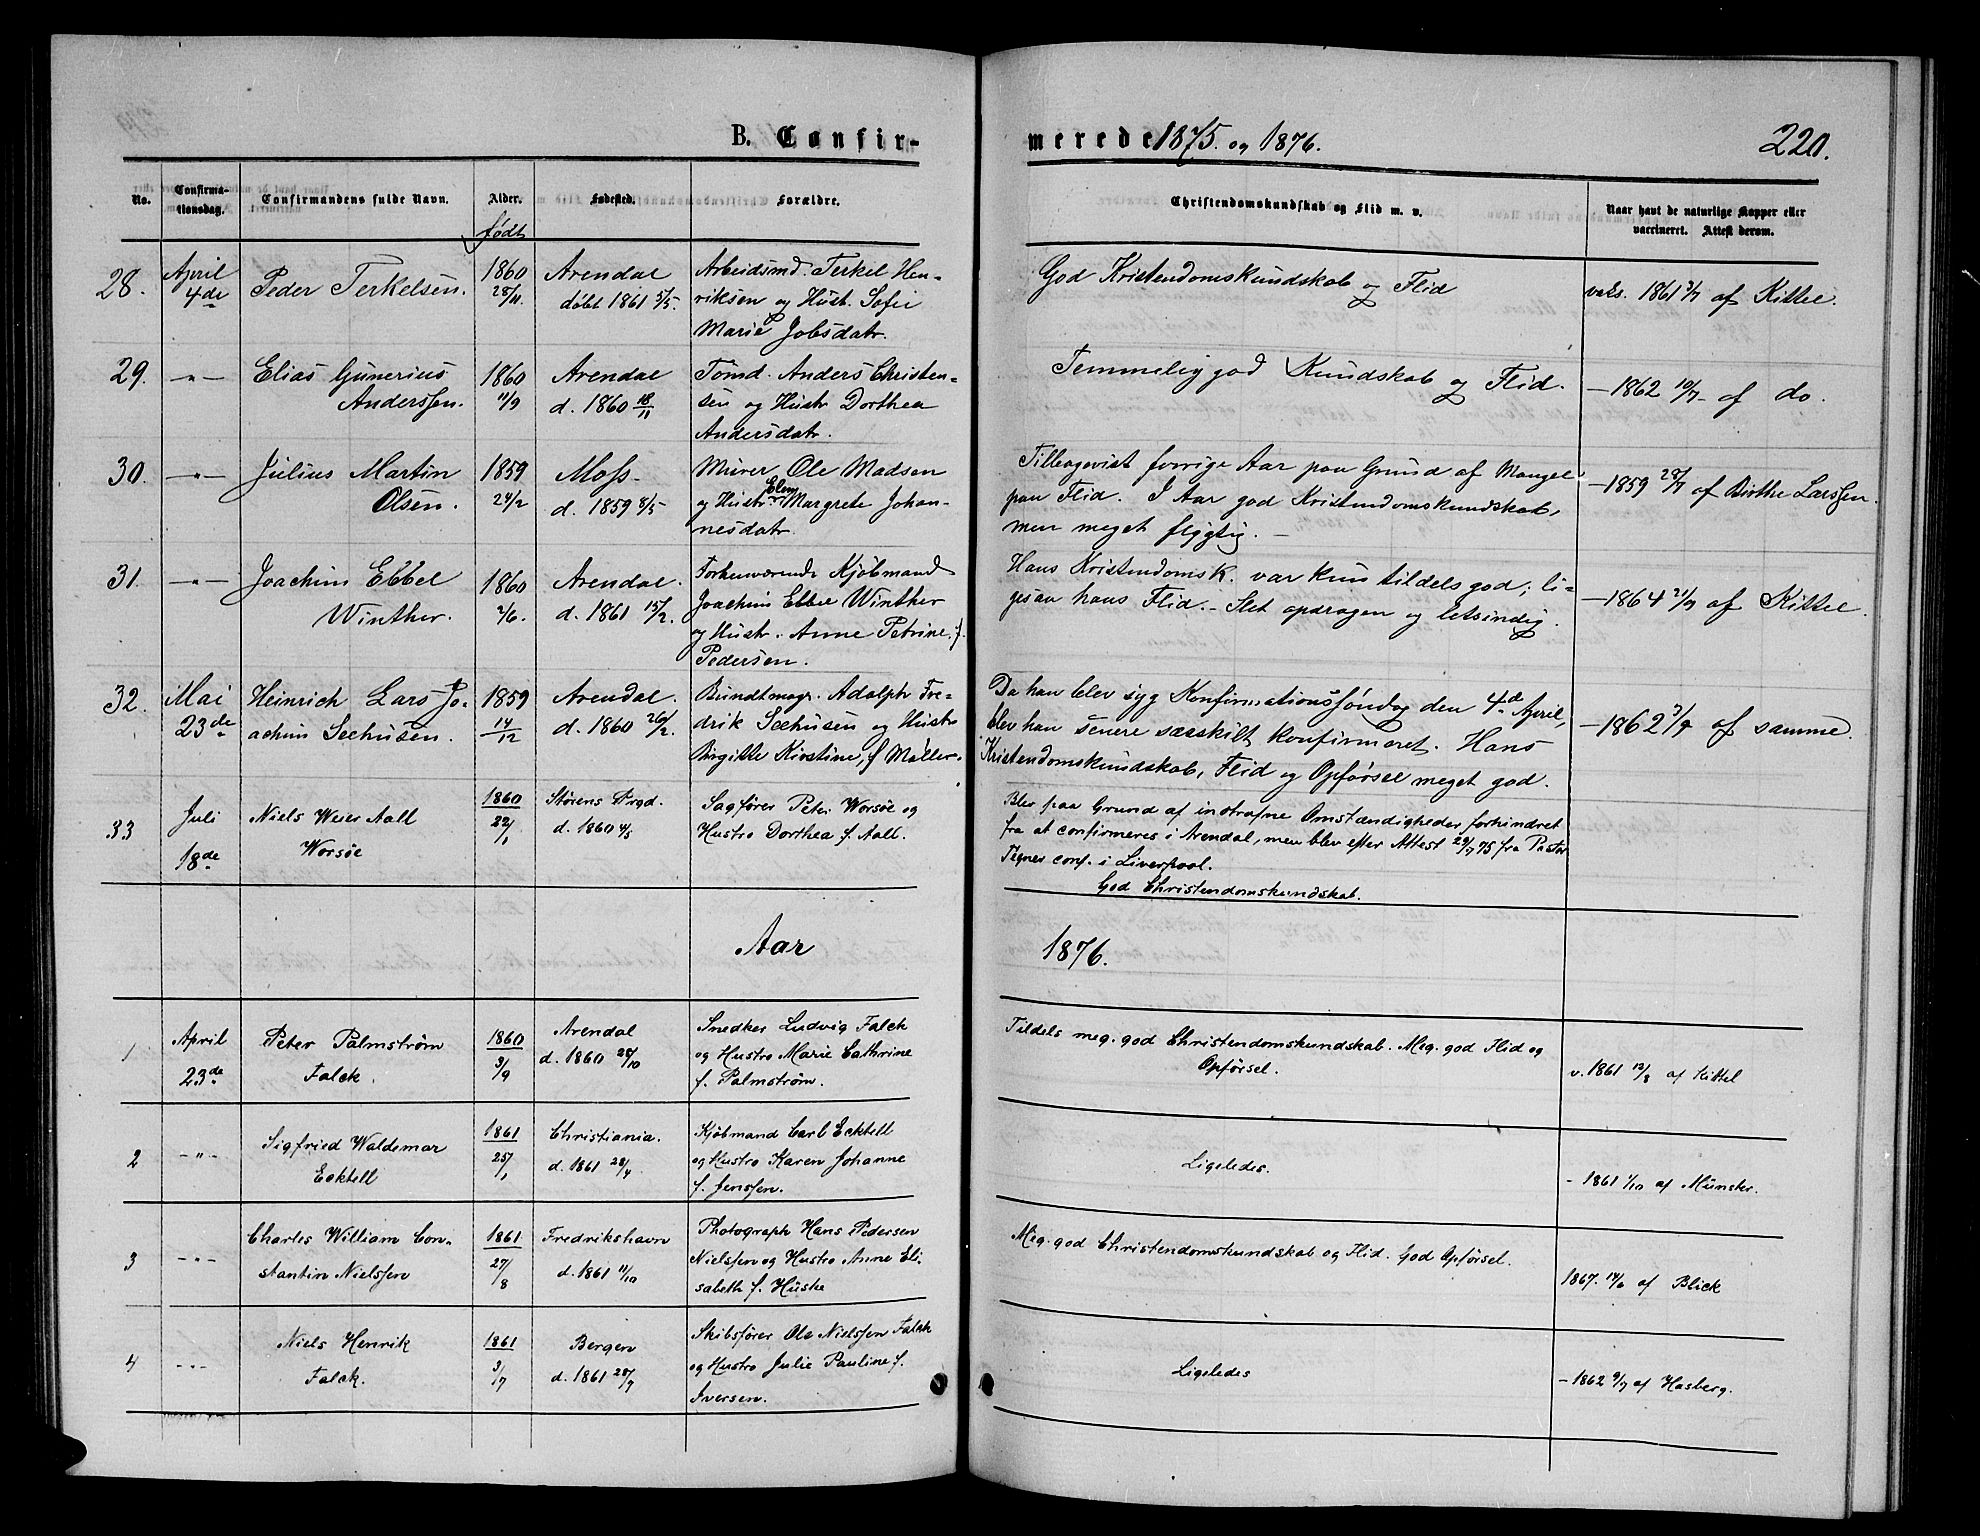 B. Confirmerede 1875. og 1876. 220.
No. Confirmationsdag. Confirmandens fulde Navn. Alder. født Fødested. Forældre. Christendomskundskab og Flid m. v. Naar havt de naturlige Kopper eller vaccineret. Attest derom.
28. April 4de Peder Terkelsen. 1860 28/11. Arendal døbt 1861 5/5.
Arbeidsmd. Terkel Hen-
riksen og Hust. Sofie
Marie Jobsdatr.
God Kristendomskundskab og Flid
vaks. 1861 3/7 af Kittel.
29. -"- Elias Gunerius
Anderssen. 1860 11/9 Arendal d. 1860 18/11
Tømd. Anders Christen-
sen og Hustr Dorthea
Andersdatr.
Temmelig god Kundskab og Flid.
- 1862 10/7 - af do.
30. -"- Julius Martin
Olsen. 1859 24/2 Moss. d. 1859 8/5
Murer Ole Madsen
og Hustr Elen Margrete Johan-
nesdatr.
Tilbagevist forrige Aar paa Grund af Mangel
paa Flid. I Aar god Kristendomskundskab,
men meget flygtig. -
- 1859 28/7 af Birthe Larssen.
31. -"- Joachim Ebbel
Winther. 1860 2/6. Arendal. d. 1861 15/2.
Forhenværende Kjøbmand
Joachim Ebbel Winther
og Hustr. Anne Petrine f.
Pedersen.
Hans Kristendomsk. var kun tildels god; li-
gesaa hans Flid. - Slet opdragen og letsindig.
- 1864 21/9 af Kittel.
32. Mai 23de Heinrich Lars Jo-
achim Seehusen. 1859 14/12 Arendal. d. 1860 26/2.
Bundtmagr. Adolph Fre-
drik Seehusen og Hustr
Birgitte Kirstine, f Møller.
Da han blev syg Konfirmationssøndag den 4de April,
blev han senere særskilt konfirmeret. Hans
Kristendomskundskab, Flid og Opførsel meget god.
- 1862 3/7 af samme.
33 Juli 18de Niels Weier Aall
Worsöe 1860 22/1 Störens Prgd. d. 1860 4/5
Sagfører Peter Worsöe og
Hustro Dorthea f. Aall.
Blev paa Grund af indtrufne Omstændigheder forhindret
fra at confirmeres i Arendal, men blev efter Attest 29/7 75 fra Pastor
Tegner conf. i Liverpool.
God Christendomskundskab.
Aar 1876.
1 April 23de Peter Palmstrøm
Falck. 1860 3/9 Arendal d. 1860 28/10
Snedker Ludvig Falck
og Hustro Marie Cathrine
f. Palmstrøm.
Tildels meg. god Christendomskundskab. Meg. god Flid og
Opførsel.
v. 1861 12/8 af Kittel
2 -"- Sigfried Waldemar
Ecktell 1861 25/1 Christiania. d. 1861 28/4
Kjøbmand Carl Ecktell
og Hustro Karen Johanne
f. Jenssen.
Ligeledes.
- 1861 1/10 af Münster.
3 -"- Charles William Con-
stantin Nielssen 1861 27/8 Fredrikshavn d. 1861 11/10
Photograph Hans Pedersen
Nielssen og Hustro Anne Eli-
sabeth f. Huske
Meg. god Christendomskundskab og Flid. God Opførsel.
1867. 14/6 af Blick
4 -"- Niels Henrik
Falck. 1861 3/7 Bergen d. 1861 28/7
Skibsfører Ole Nielssen Falck
og Hustro Julie Pauline f.
Iversen.
Ligeledes
- 1862 9/7 af Hasberg.